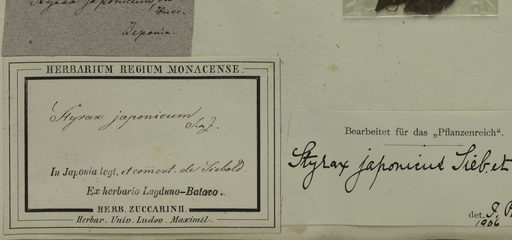 Styrax japonicum,
Zucc.
Japonia.
HERBARIUM REGIUM MONACENSE.
Styrax japonicum
In Japonia legt. et comevt. de Siebold
Ex herbario Lugduno-Batavo.
HERB. ZUCCARINII.
Herbar. Univ. Ludov. Maximil.
Bearbeitet für das „Pflanzenreich".
Styrax japonicus Sieb. et
det. J. P
1906